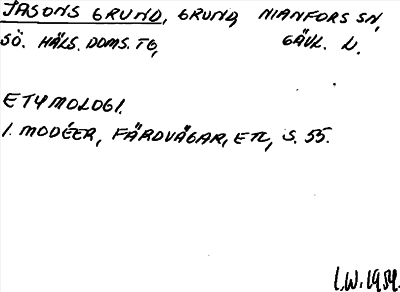 JASONS GRUND, GRUND, NIANFORS SN,
SÖ. HÄLS. DOMS. TG, GÄVL. L.
ETYMOLOGI.
I. MODÉER, FÄRDVÄGAR, ETC, S. 55.
I.W. 1959.